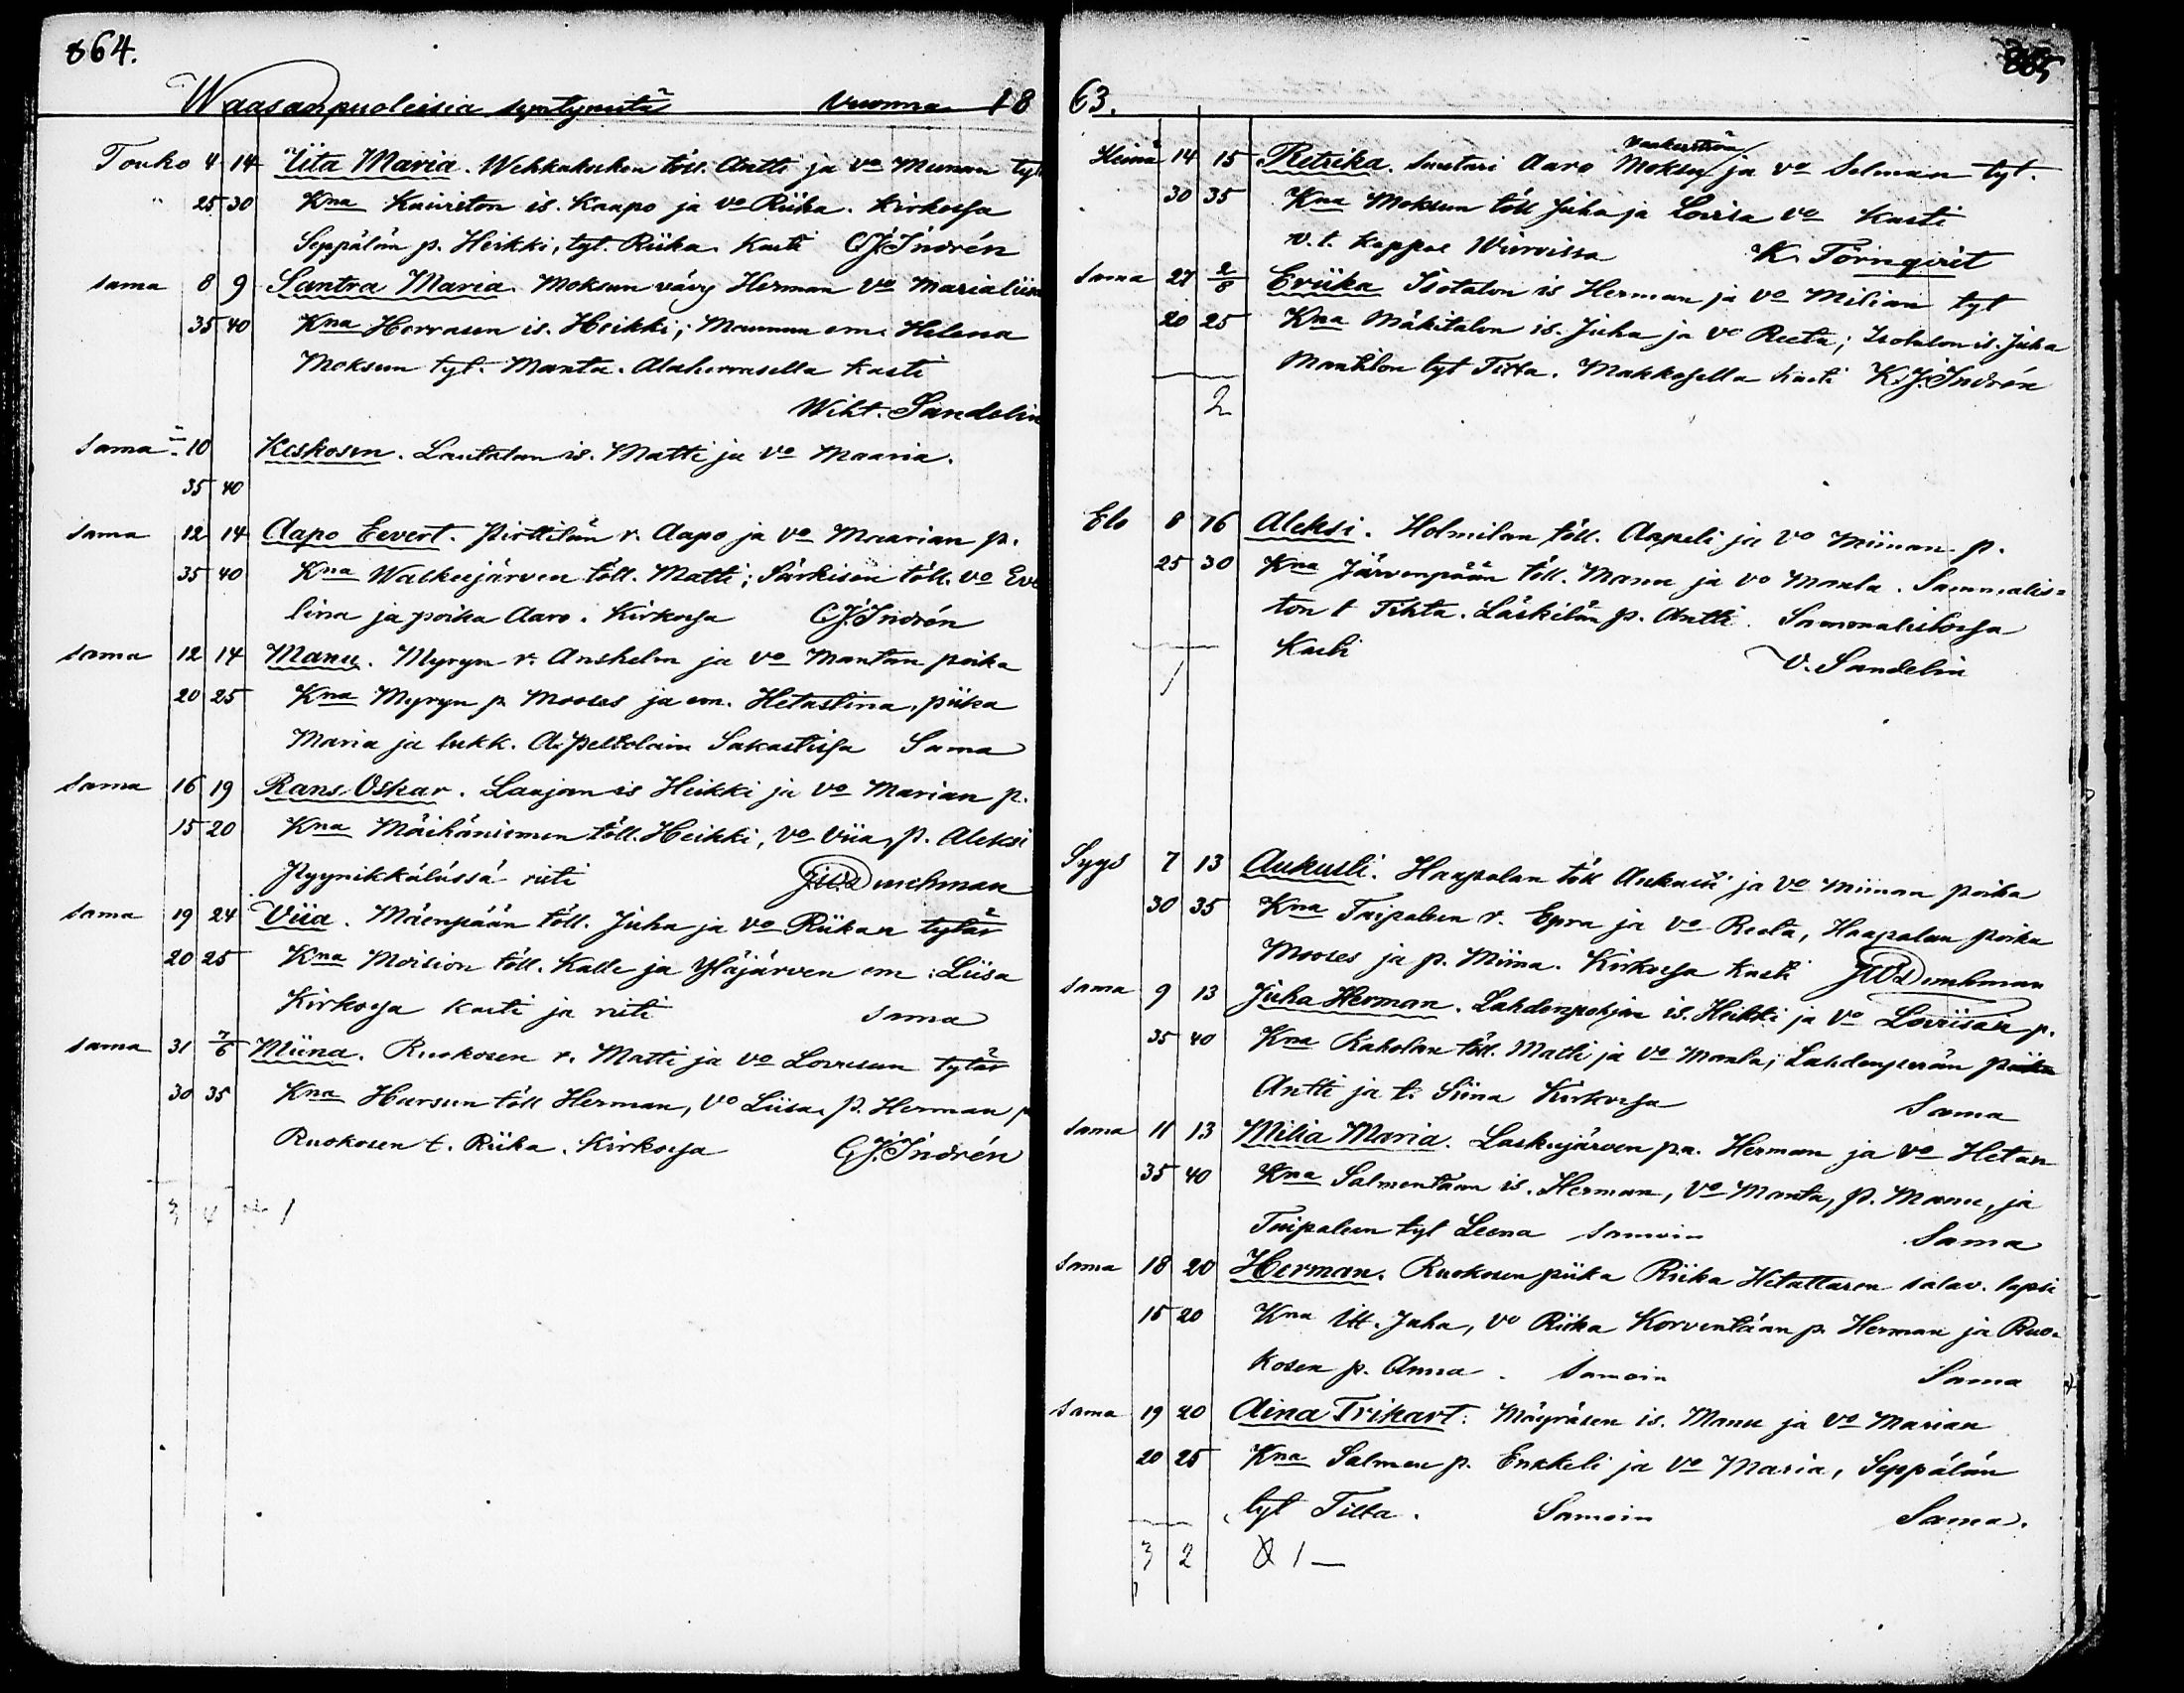 864.
Waasanpuoleisia syntyneitä Vuonna 18
Touko 4 14 Iita Maria. Wehkakosken töll. Antti ja vo Minnan tyt
25 30 Kna Kaiviston is. Kaapo ja vo Riika. Kirkossa
Seppälän p. Heikki, tyt. Riika. Kasti CJ. Indrén
sama 8 9 Santra Maria. Moksun vävy Herman vo Marialiisa
35 40 Kna Herrasen is. Heikki; Mommon em. Helena
Moksun tyt. Manta. Alaherrasella Kasti
Wiht. Sandelin
sama 10 Keskosen. Lautalan is. Matti ja vo Maaria.
35 40
sama 12 14 Aapo Eevert. Pirttilän r. Aapo ja vo Maarian p.
35 40 Kna Walkeejärven töll. Matti; Särkisen töll. vo Eve
lina ja poika Aaro. Kirkossa CJ. Indrén
sama 12 14 Manu. Myryn r. Anshelm ja vo Mantan poika
20 25 Kna Myryn p. Mooses ja em. Hetastina, piika
Maria ja lukk. A. Peltolain Sakastissa Sama
sama 16 19 Rans Oskar. Laajan is Heikki ja vo Marian p.
15 20 Kna Mäihäniemen töll. Heikki, vo Viia, p. Aleksi
Pyynikkälässä risti JWDurchman
sama 19 24 Viia. Mäenpään töll. Juha ja vo Riikan tytär
20 25 Kna Moision töll. Kalle ja Yläjärven em: Liisa
Kirkossa kasti ja risti sama
sama 31 7/6 Miina. Ruokosen r. Matti ja vo Lovisan tytär
30 35 Kna Harsun töll Herman, vo Liisa. p. Herman
Ruokosen t. Riika. Kirkossa CJ. Indrén
3 4 1
63. 865
Heinä 14 15 Retrika. Suutari Aaro Moksun ja vo Selman tyt.
30 35 Kna Moksun töll Juha ja Lovisa vo Kasti
v.t. Kappal Wirroissa K. Törnqvist
sama 27 2/8 Eriika Isotalon is Herman ja vo Milian tyt
20 25 Kna Mäkitalon is. Juha ja vo Reeta; Isotalon is. Juha
Manttilon tyt Titta. Makkosella kasti K.J. Indrén
2
Elo 8 16 Aleksi. Holmilan töll. Aapeli ja vo Miinan p.
25 30 Kna Järvenpään töll. Manu ja vo Manta. Sammalis=
ton t Tikta. Läskilän p. Antti. Sammalistossa
Kasti V. Sandelin
1
Syys 7 13 Aukusti. Haapalan töll Aukusti ja vo Miinan poika
30 35 Kna Taipaleen r. Epra ja vo Reeta, Haapalan poika
Mooses ja p. Miina. Kirkossa Kasti JWDurchman
sama 9 13 Juha Herman. Lahdenpohjan is. Heikki ja vo Loviisan p.
35 40 Kna Kaholan töll. Matti ja vo Manta; Lahdenperän
Antti ja t. Siina Kirkossa Sama
sama 11 13 Milia Maria. Laskujärven pa. Herman ja vo Hetan
35 40 Kna Salmentaan is. Herman, vo Manta, p. Manu, ja
Taipaleen tyt Leena samoin Sama
sama 18 20 Herman. Ruokosen piika Riika Hetattaren salav. lapsi
15 20 Kna Itt. Juha, vo Riika Korventään p. Herman ja Ruo-
kosen p. Anna. Samoin Sama
sama 19 20 Aina Trikart. Mäyräsen is. Manu ja vo Marian
20 25 Kna Salmen p. Enkkeli ja vo Maria, Seppälän
tyt Titta. Samoin Sama.
3 2 1